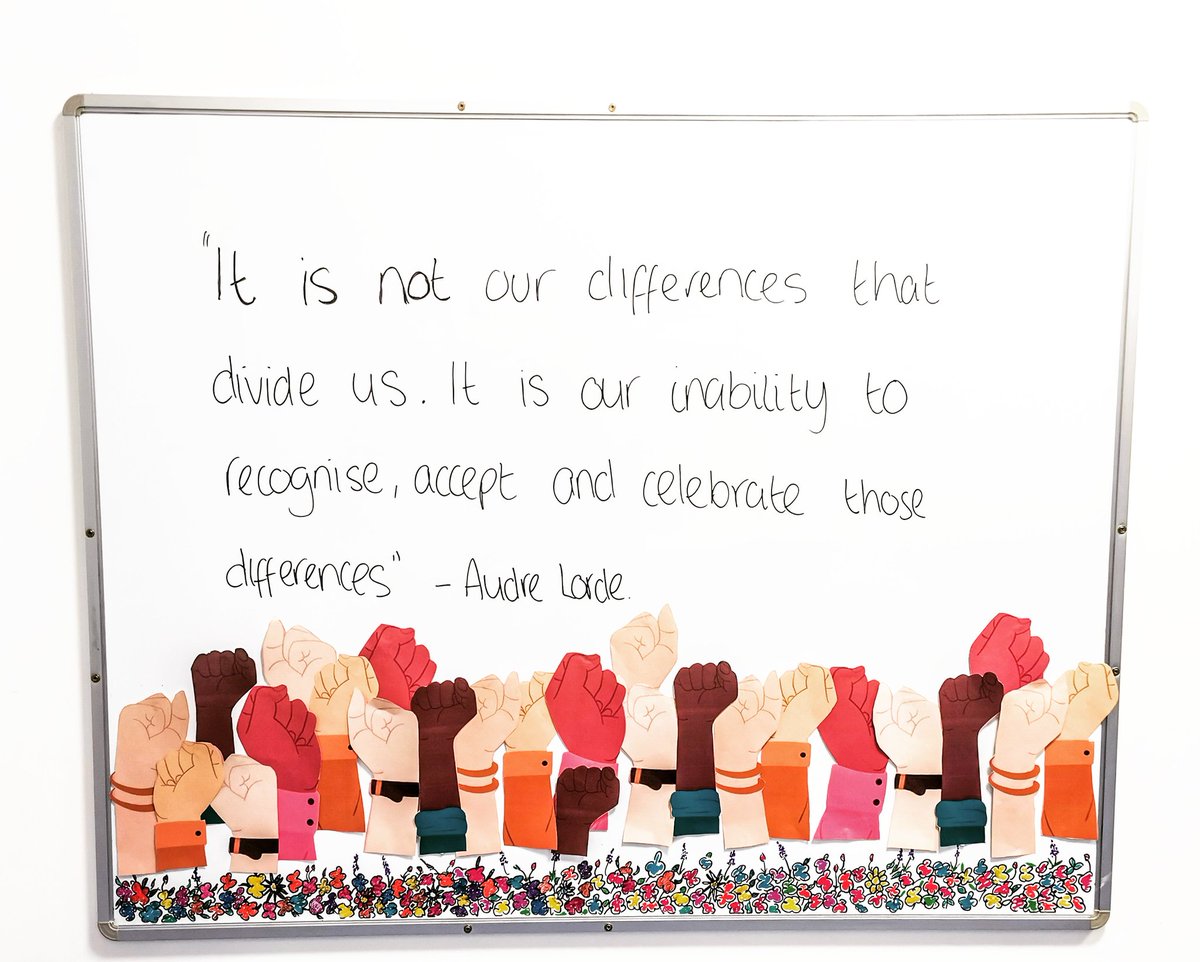 "It is not our differences that
divide us. It is our inability to
recognise, accept and celebrate those
differences" - Audre Lorde.